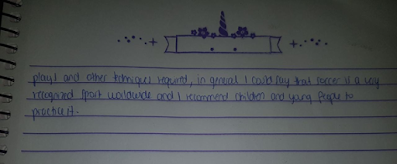 plays and other techniques required, in general I could say that soccer is a very
recognized sport worldwide and I recommend children and young people to
practice it.